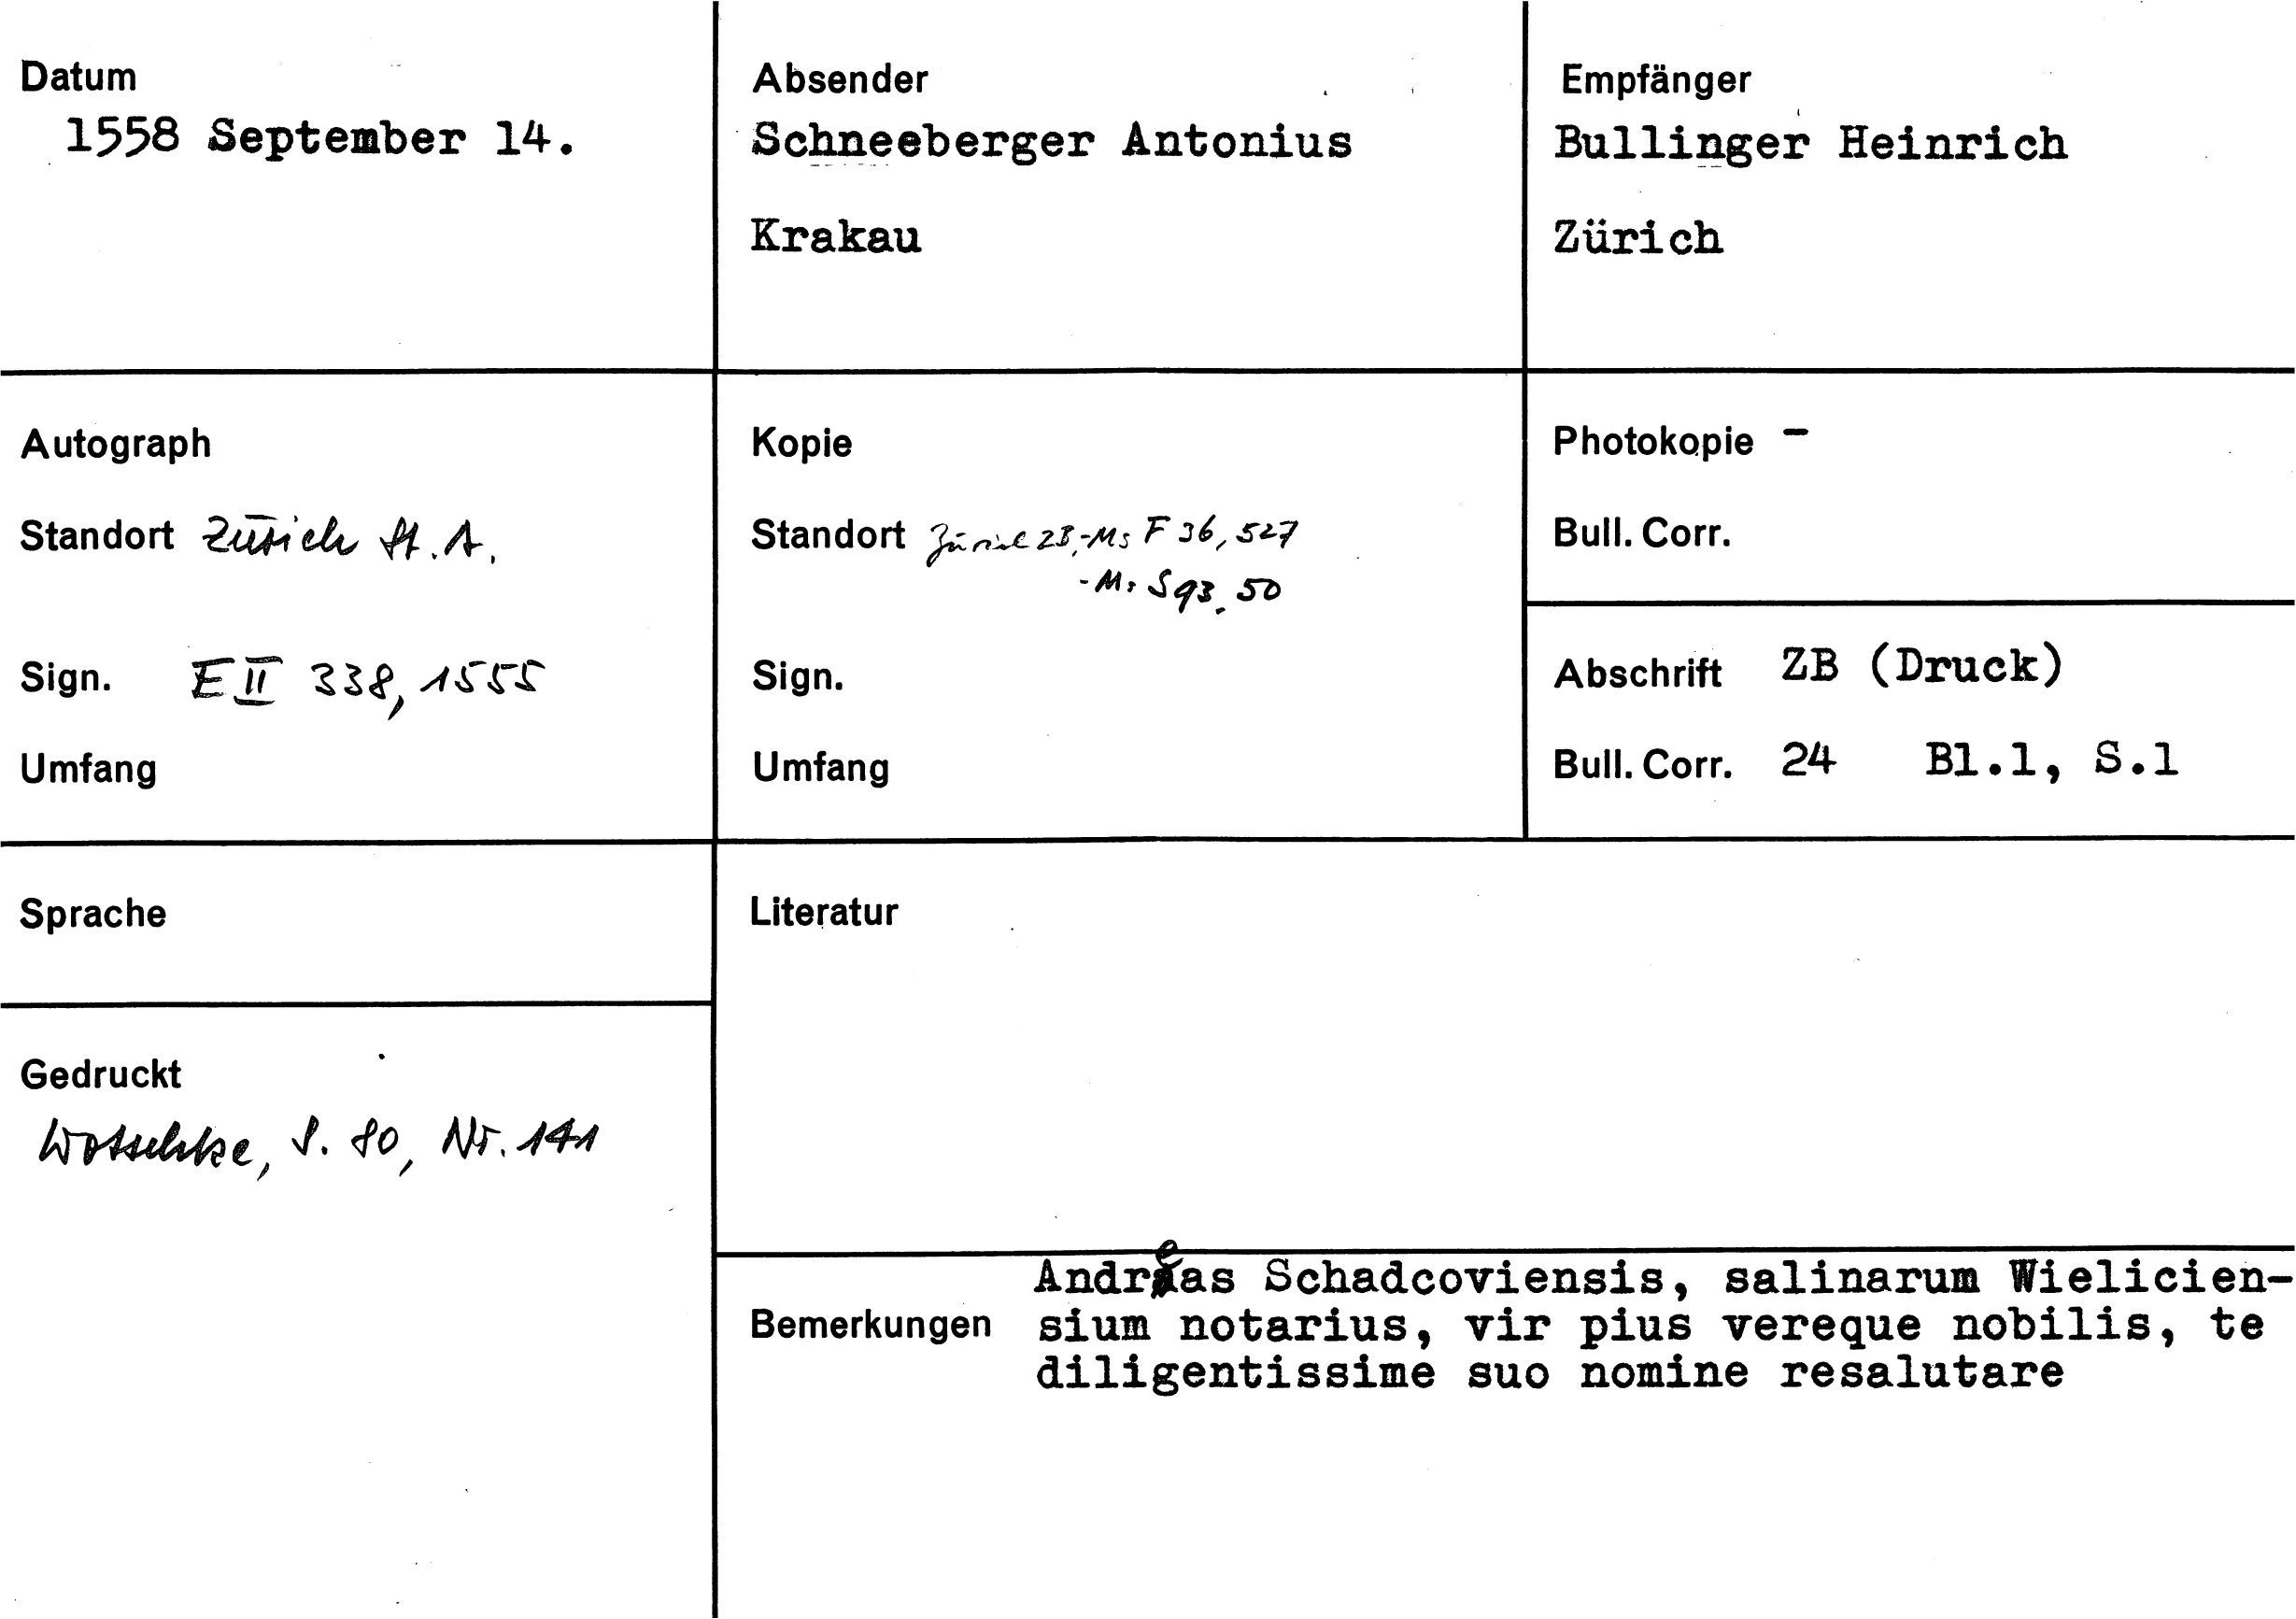 Datum
1558 September 14.
Absender
Schneeberger Antonius
Krakau
Empfänger
Bullinger Heinrich
Zürich
Autograph
Standort Zürich St. A.
Sign. E II 338, 1555
Umfang
Kopie
Standort Zürich ZB, - Ms F 36, 527
- Ms S 93, 50
Sign.
Umfang
Photokopie -
Bull. Corr.
Abschrift ZB (Druck)
Bull. Corr. 24 Bl.1, S.1
Sprache
Gedruckt
Wotschke, S. 80, Nr. 141
Literatur
Bemerkungen
Andreas Schadcoviensis, salinarum Wielicien-
sium notarius, vir pius vereque nobilis, te
diligentissime suo nomine resalutare